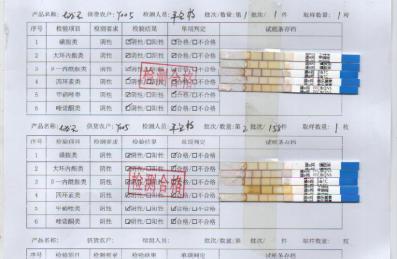 产品名称: 供货农户: Y005 检测人员: 批次/数量:第 1 批次/ 1 件 取样数量: 1 枚
序号 检验项目 检测要求 检验结果 单项判定 试纸条存档
1 磺胺类 阴性 ☑阴性/☐阳性 ☑合格/☐不合格
2 大环内酯类 阴性 ☑阴性/☐阳性 ☑合格/☐不合格
3 β一内酰胺类 阴性 ☑阴性/☐阳性 ☑合格/☐不合格
4 四环素类 阴性 ☑阴性/☐阳性 ☑合格/☐不合格
5 甲硝唑类 阴性 ☑阴性/☐阳性 ☑合格/☐不合格
6 喹诺酮类 阴性 ☑阴性/☐阳性 ☑合格/☐不合格
检测合格
产品名称: 供货农户: Y005 检测人员: 批次/数量:第 2 批次/ 件 取样数量: 1 枚
序号 检验项目 检测要求 检验结果 单项判定 试纸条存档
1 磺胺类 阴性 ☑阴性/☐阳性 ☑合格/☐不合格
2 大环内酯类 阴性 ☑阴性/☐阳性 ☑合格/☐不合格
3 β一内酰胺类 阴性 ☑阴性/☐阳性 ☑合格/☐不合格
4 四环素类 阴性 ☑阴性/☐阳性 ☑合格/☐不合格
5 甲硝唑类 阴性 ☑阴性/☐阳性 ☑合格/☐不合格
6 喹诺酮类 阴性 ☑阴性/☐阳性 ☑合格/☐不合格
检测合格
产品名称: 供货农户: 检测人员: 批次/数量:第 批次/ 件 取样数量: 枚
序号 检验项目 检测要求 检验结果 单项判定 试纸条存档